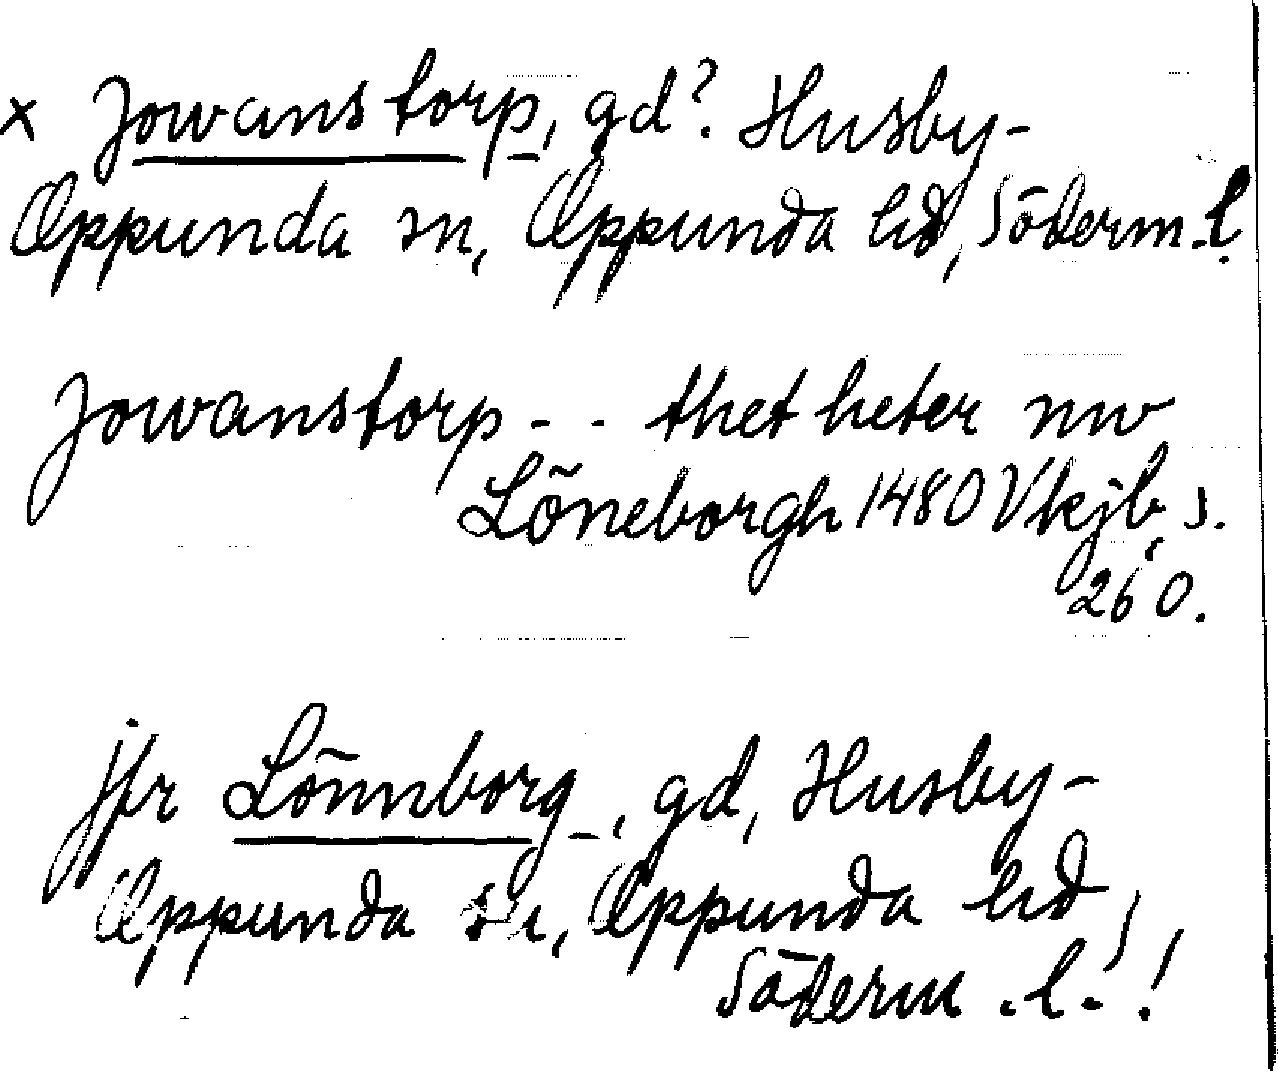 x Jowanstorp, gd? Husby-
Oppunda sn, Oppunda hd, Söderm.l.
Jowanstorp - - thet heter nw
Löneborgh 1480 Vkjb, s.
260.
jfr Lönnborg, gd, Husby-
Oppunda sn, Oppunda hd,
Söderm.l.!